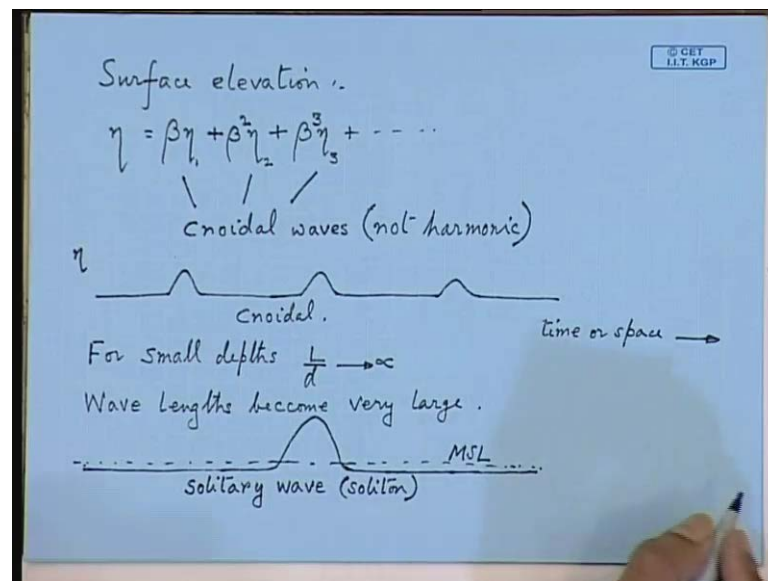 © CET
I.I.T. KGP
Surface elevation :.
η = βη₁ + β²η₂ + β³η₃ + - - - -
Cnoidal waves (not harmonic)
η
Cnoidal.
time or space →
For small depths L/d → ∝
Wave lengths become very large.
MSL
Solitary wave (soliton)